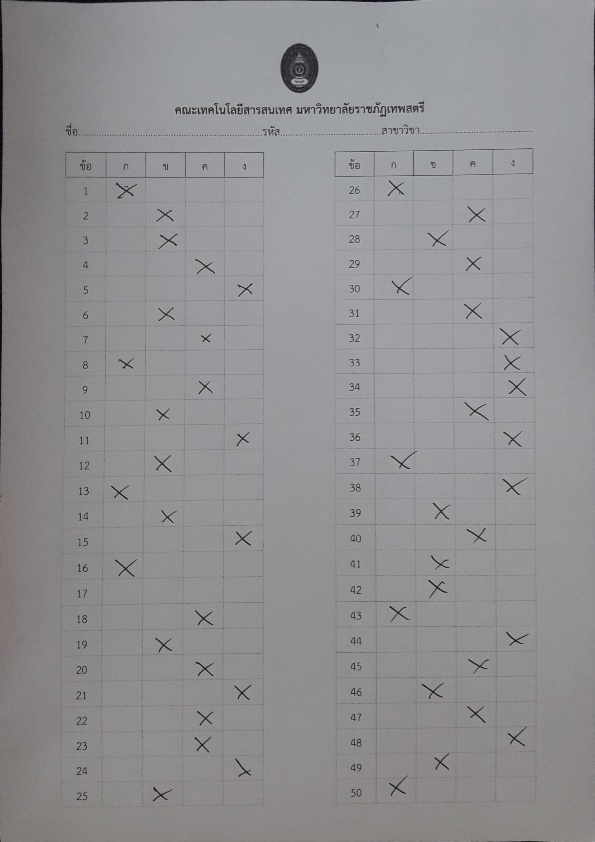 คณะเทคโนโลยีสารสนเทศ มหาวิทยาลัยราชภัฏเทพสตรี
ชื่อ.................................................รหัส..............................สาขาวิชา..................................
ข้อ ก ข ค ง
1 X
2 X
3 X
4 X
5 X
6 X
7 X
8 X
9 X
10 X
11 X
12 X
13 X
14 X
15 X
16 X
17
18 X
19 X
20 X
21 X
22 X
23 X
24 X
25 X
ข้อ ก ข ค ง
26 X
27 X
28 X
29 X
30 X
31 X
32 X
33 X
34 X
35 X
36 X
37 X
38 X
39 X
40 X
41 X
42 X
43 X
44 X
45 X
46 X
47 X
48 X
49 X
50 X